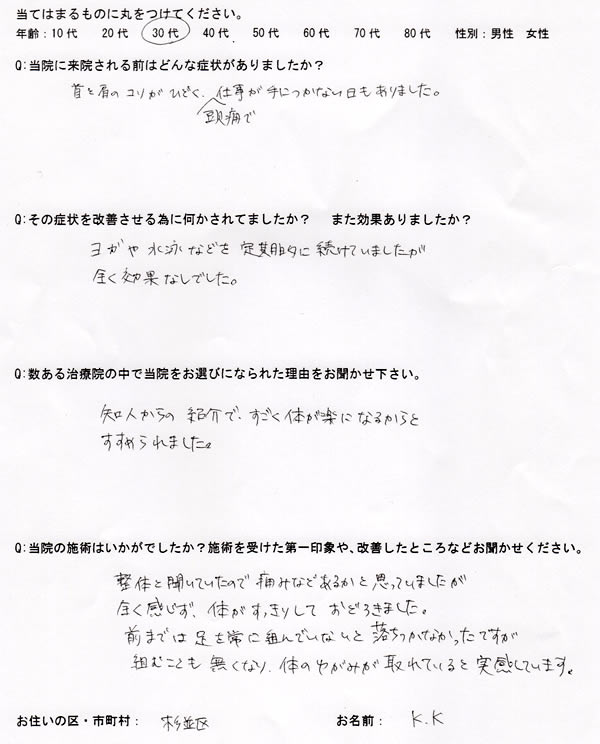 当てはまるものに丸をつけてください。
年齢：10代 20代 30代 40代 50代 60代 70代 80代 性別：男性 女性
Q:当院に来院される前はどんな症状がありましたか？
首と肩のコリがひどく、頭痛で仕事が手につかない日もありました。
Q:その症状を改善させる為に何かされてましたか？ また効果ありましたか？
ヨガや水泳などを定期的に続けていましたが
全く効果なしでした。
Q:数ある治療院の中で当院をお選びになられた理由をお聞かせ下さい。
知人からの紹介で、すごく体が楽になるからと
すすめられました。
Q:当院の施術はいかがでしたか？施術を受けた第一印象や、改善したところなどお聞かせください。
整体と聞いていたので痛みなどあるかと思っていましたが
全く感じず、体がすっきりしておどろきました。
前までは足を常に組んでいないと落ちつかなかったですが
組むことも無くなり、体のゆがみが取れていると実感しています。
お住いの区・市町村： 杉並区 お名前： K.K